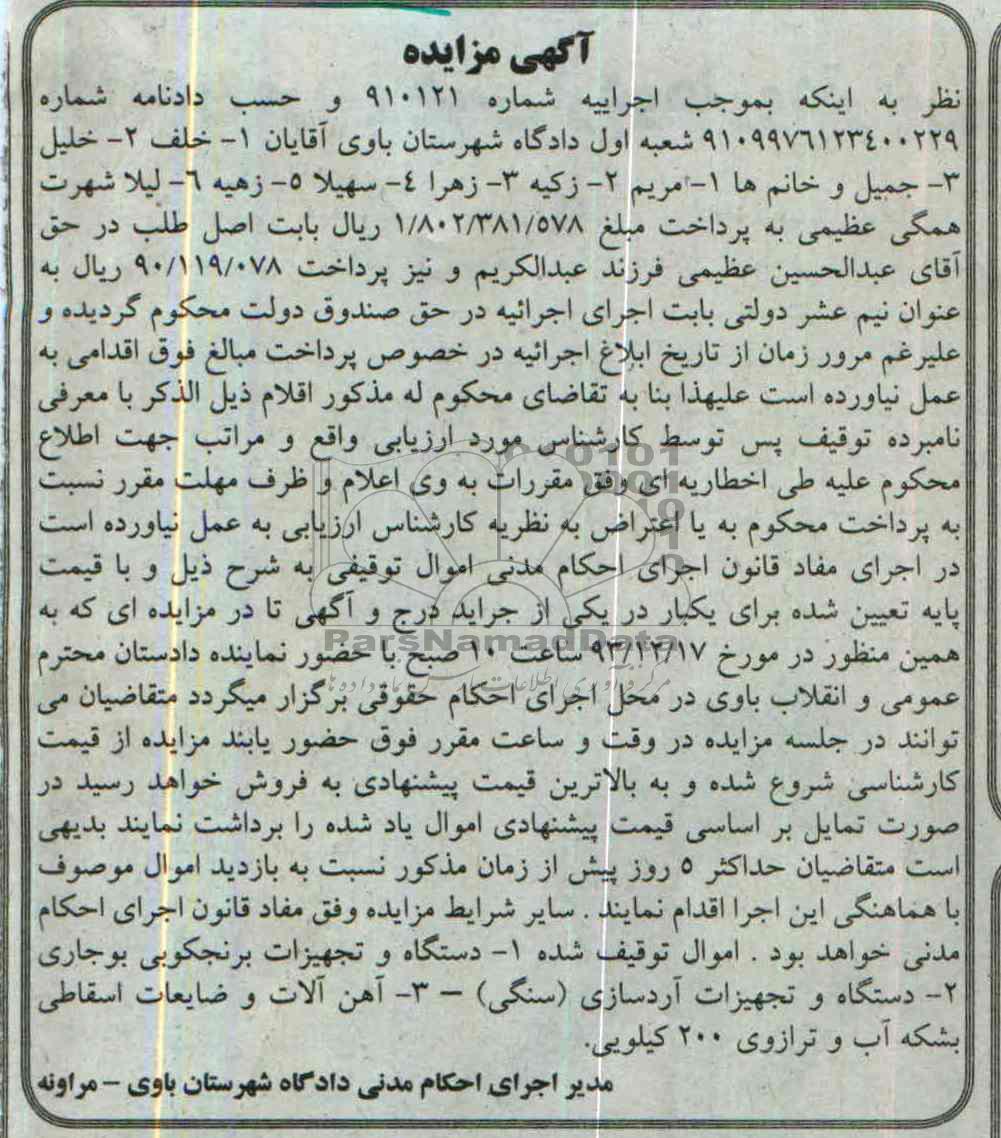 آگهی مزایده
نظر به اینکه بموجب اجراییه شماره ۹۱۰۱۲۱ و حسب دادنامه شماره
۹۱۰۹۹۷۶۱۲۳٤۰۰۲۲۹ شعبه اول دادگاه شهرستان باوی آقایان ۱- خلف ۲- خلیل
۳- جمیل و خانم ها ۱- مریم ۲- زکیه ۳- زهرا ٤- سهیلا ٥- زهیه ٦- لیلا شهرت
همگی عظیمی به پرداخت مبلغ ۱/۸۰۲/۳۸۱/٥۷۸ ریال بابت اصل طلب در حق
آقای عبدالحسین عظیمی فرزند عبدالکریم و نیز پرداخت ۹۰/۱۱۹/۰۷۸ ریال به
عنوان نیم عشر دولتی بابت اجرای اجرائیه در حق صندوق دولت محکوم گردیده و
علیرغم مرور زمان از تاریخ ابلاغ اجرائیه در خصوص پرداخت مبالغ فوق اقدامی به
عمل نیاورده است علیهذا بنا به تقاضای محکوم له مذکور اقلام ذیل الذکر با معرفی
نامبرده توقیف پس توسط کارشناس مورد ارزیابی واقع و مراتب جهت اطلاع
محکوم علیه طی اخطاریه ای وفق مقررات به وی اعلام و ظرف مهلت مقرر نسبت
به پرداخت محکوم به یا اعتراض به نظریه کارشناس ارزیابی به عمل نیاورده است
در اجرای مفاد قانون اجرای احکام مدنی اموال توقیفی به شرح ذیل و با قیمت
پایه تعیین شده برای یکبار در یکی از جراید درج و آگهی تا در مزایده ای که به
ParsNamadData
همین منظور در مورخ ۹۳/۱۱/۱۷ ساعت ۱۰ صبح با حضور نماینده دادستان محترم
عمومی و انقلاب باوی در محل اجرای احکام حقوقی برگزار میگردد متقاضیان می
توانند در جلسه مزایده در وقت و ساعت مقرر فوق حضور یابند مزایده از قیمت
کارشناسی شروع شده و به بالاترین قیمت پیشنهادی به فروش خواهد رسید در
صورت تمایل بر اساسی قیمت پیشنهادی اموال یاد شده را برداشت نمایند بدیهی
است متقاضیان حداکثر ٥ روز پیش از زمان مذکور نسبت به بازدید اموال موصوف
با هماهنگی این اجرا اقدام نمایند . سایر شرایط مزایده وفق مفاد قانون اجرای احکام
مدنی خواهد بود . اموال توقیف شده ۱- دستگاه و تجهیزات برنجکوبی بوجاری
۲- دستگاه و تجهیزات آردسازی (سنگی) – ۳- آهن آلات و ضایعات اسقاطی
بشکه آب و ترازوی ۲۰۰ کیلویی.
مدیر اجرای احکام مدنی دادگاه شهرستان باوی – مراونه